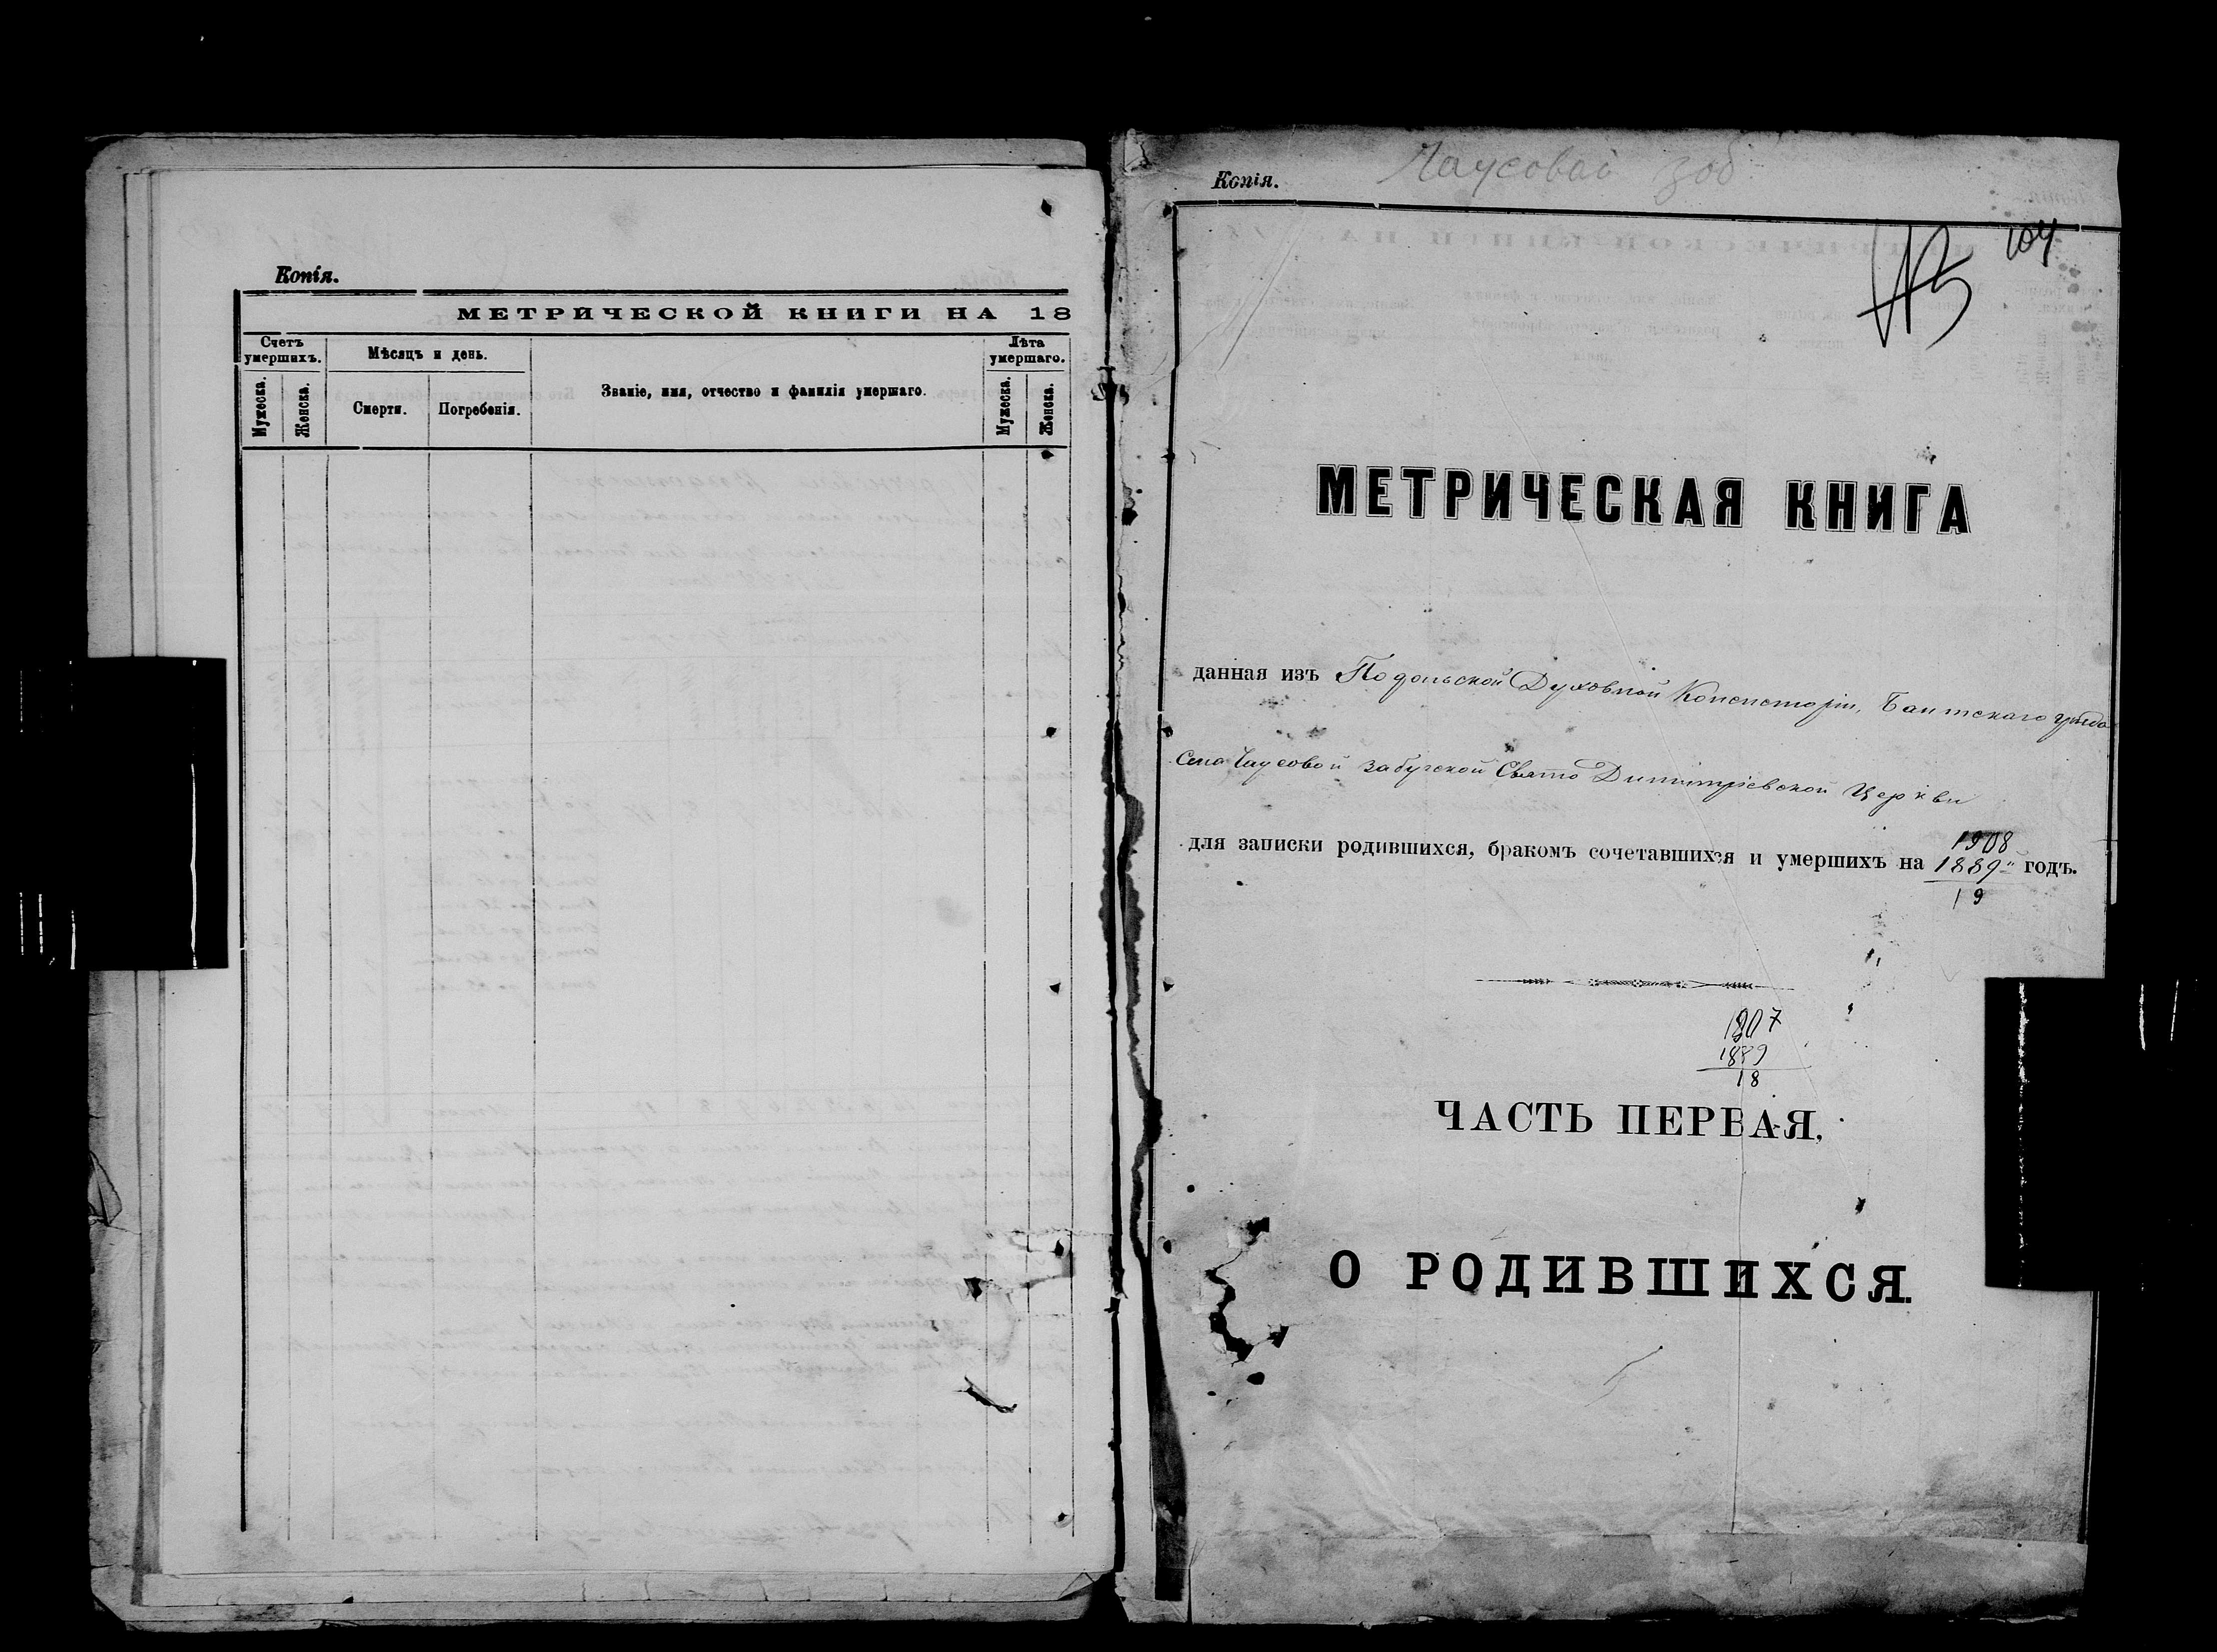 Копія.
МЕТРИЧЕСКОЙ КНИГИ НА 18
Счетъ умершихъ.
Мужеска.
Женска.
Мѣсяцъ и день.
Смерти.
Погребенія.
Званіе, имя, отчество и фамилія умершаго.
Лѣта умершаго.
Мужеска.
Женска.
Копія.
Чаусовой
104
МЕТРИЧЕСКАЯ КНИГА
данная изъ Подольской Духовной Консисторіи, Балтскаго уѣзда
Села Чаусовой Забугской Свято Димитріевской Церкви
1908
для записки родившихся, бракомъ сочетавшихся и умершихъ на 1889 годъ.
19
1907
1889
18
ЧАСТЬ ПЕРВАЯ,
О РОДИВШИХСЯ.